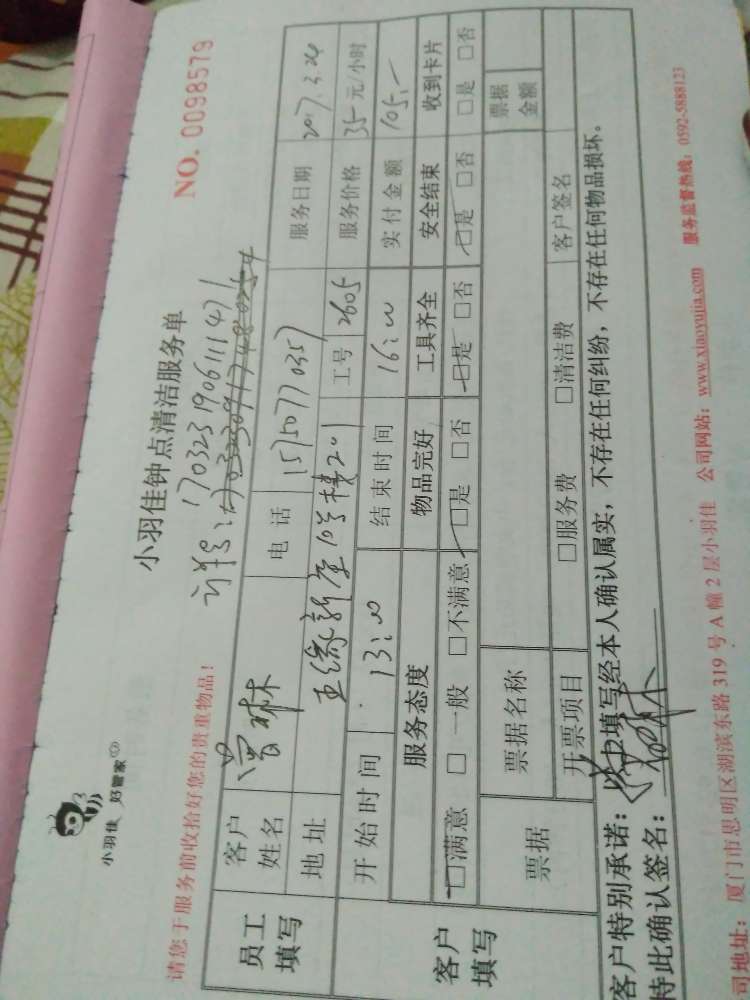 小羽佳 好管家
小羽佳钟点清洁服务单
NO. 0098579
请您于服务前收拾好您的贵重物品！
订单号：170323190611147
员工填写
客户姓名 曾琳 电话 15750770357 服务日期 2017.3.24
地址 201 工号 2605 服务价格 35元/小时
客户填写
开始时间 13:00 结束时间 16:00 实付金额 105.-
服务态度 物品完好 工具齐全 安全结束 收到卡片
□满意 □一般 □不满意 □是 □否 □是 □否 □是 □否 □是 □否
票据 票据名称 票据金额
开票项目 □服务费 □清洁费 客户签名
客户特别承诺：以上填写经本人确认属实，不存在任何纠纷，不存在任何物品损坏。
特此确认签名：
司地址：厦门市思明区湖滨东路 319 号 A 幢 2 层小羽佳 公司网站：www.xiaoyujia.com 服务监督热线：0592-5888123